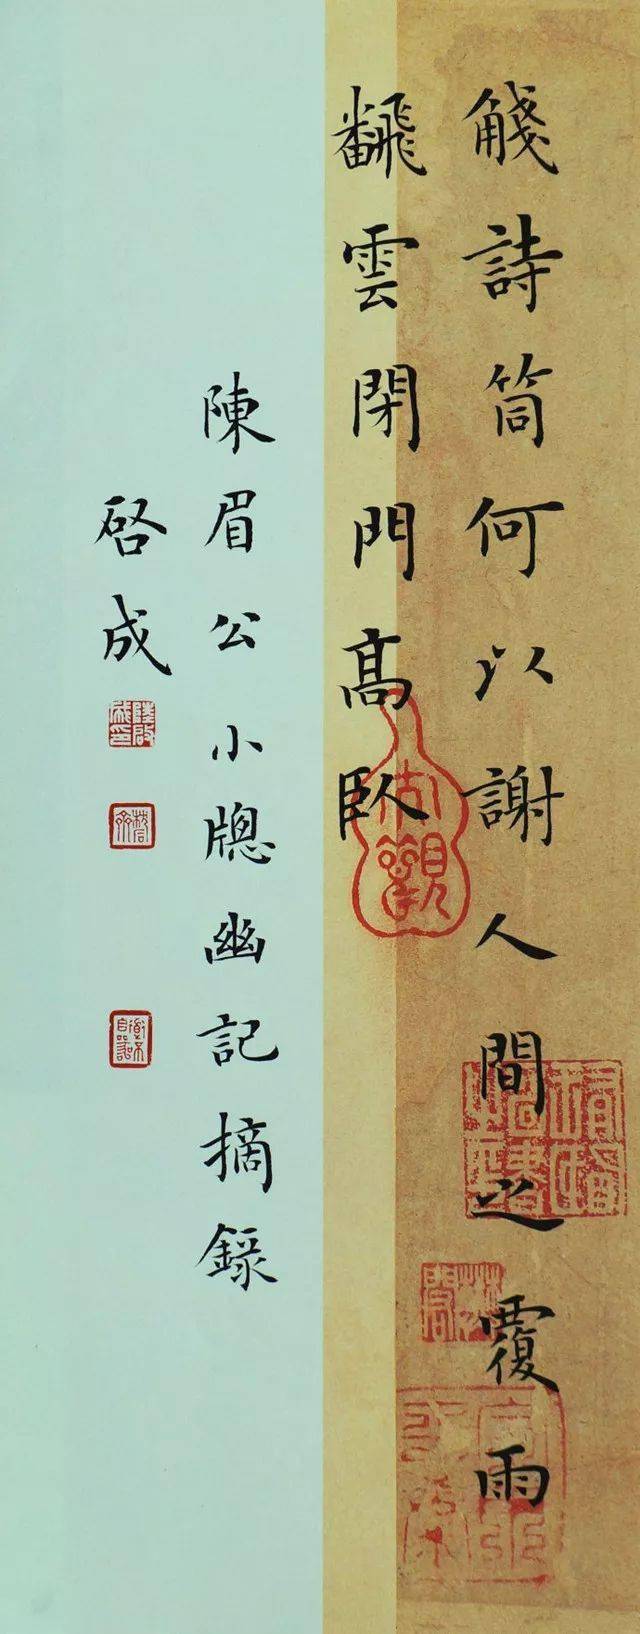 詩筒何以謝人間之覆雨
飜雲閉門高臥
陳眉公小牕幽記摘錄
啓成